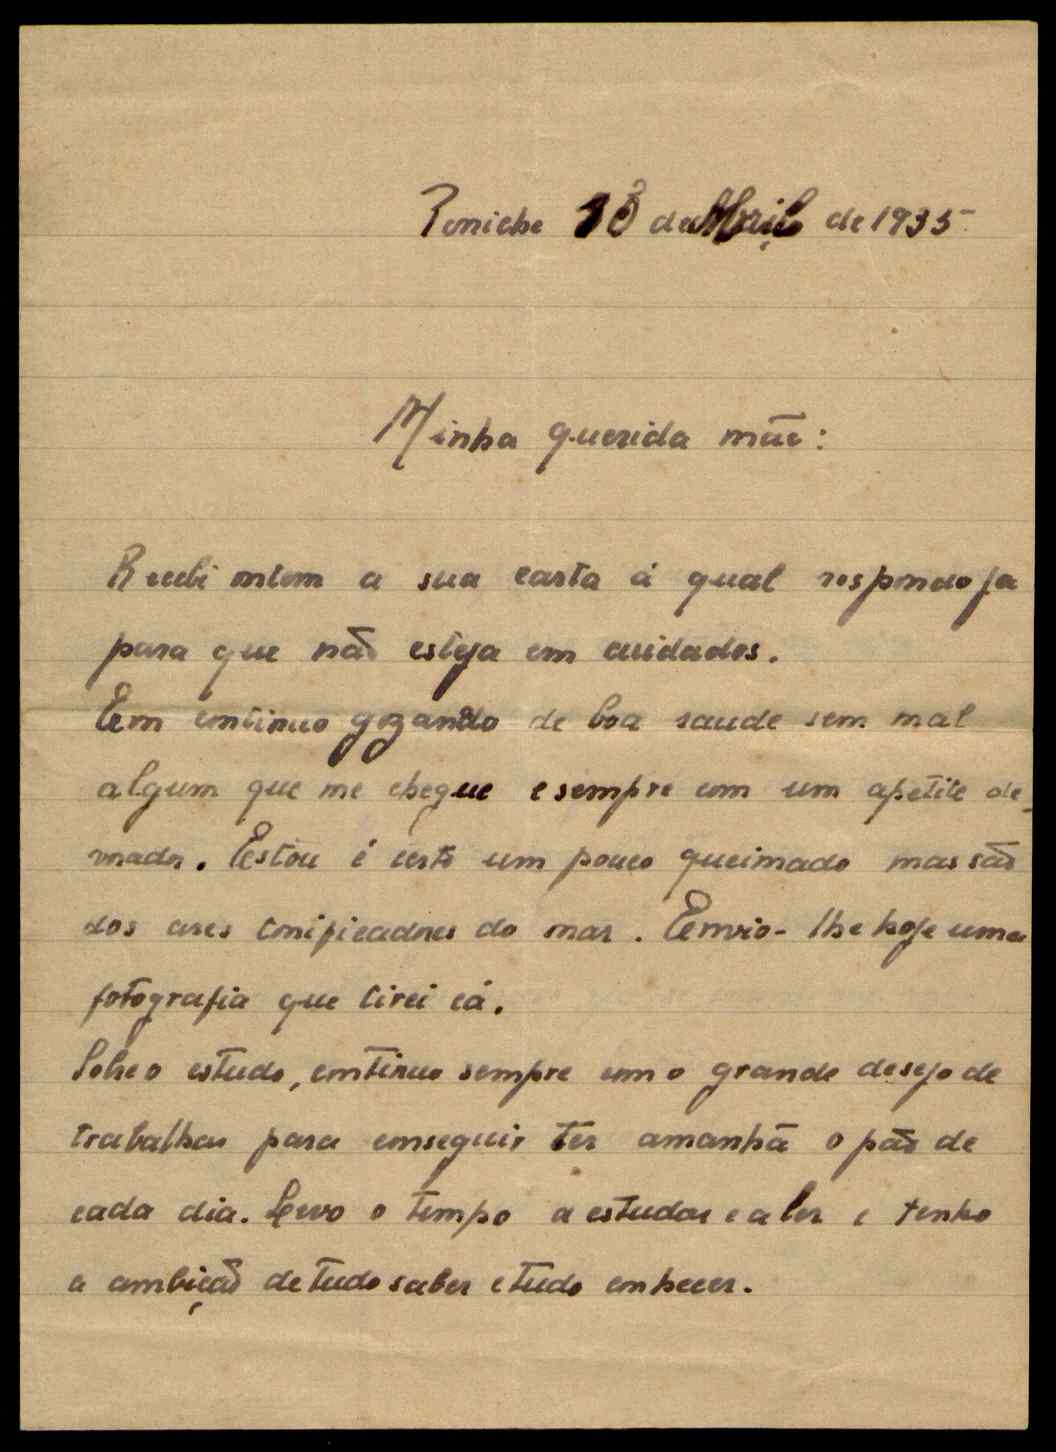 Peniche 18 de Abril de 1935
Minha querida mãe:
Recebi ontem a sua carta á qual respondo ja
para que não esteja em cuidados.
Em continuo gozando de boa saude sem mal
algum que me chegue e sempre com um apetite de-
vorador. Estou é certo um pouco queimado mas são
dos ares tonificadores do mar. Eenvio-lhe hoje uma
fotografia que tirei cá.
Sobre o estudo, continuo sempre com o grande desejo de
trabalhar para conseguir ter amanhã o pão de
cada dia. Levo o tempo a estudar e a ler e tenho
a ambição de tudo saber e tudo conhecer.